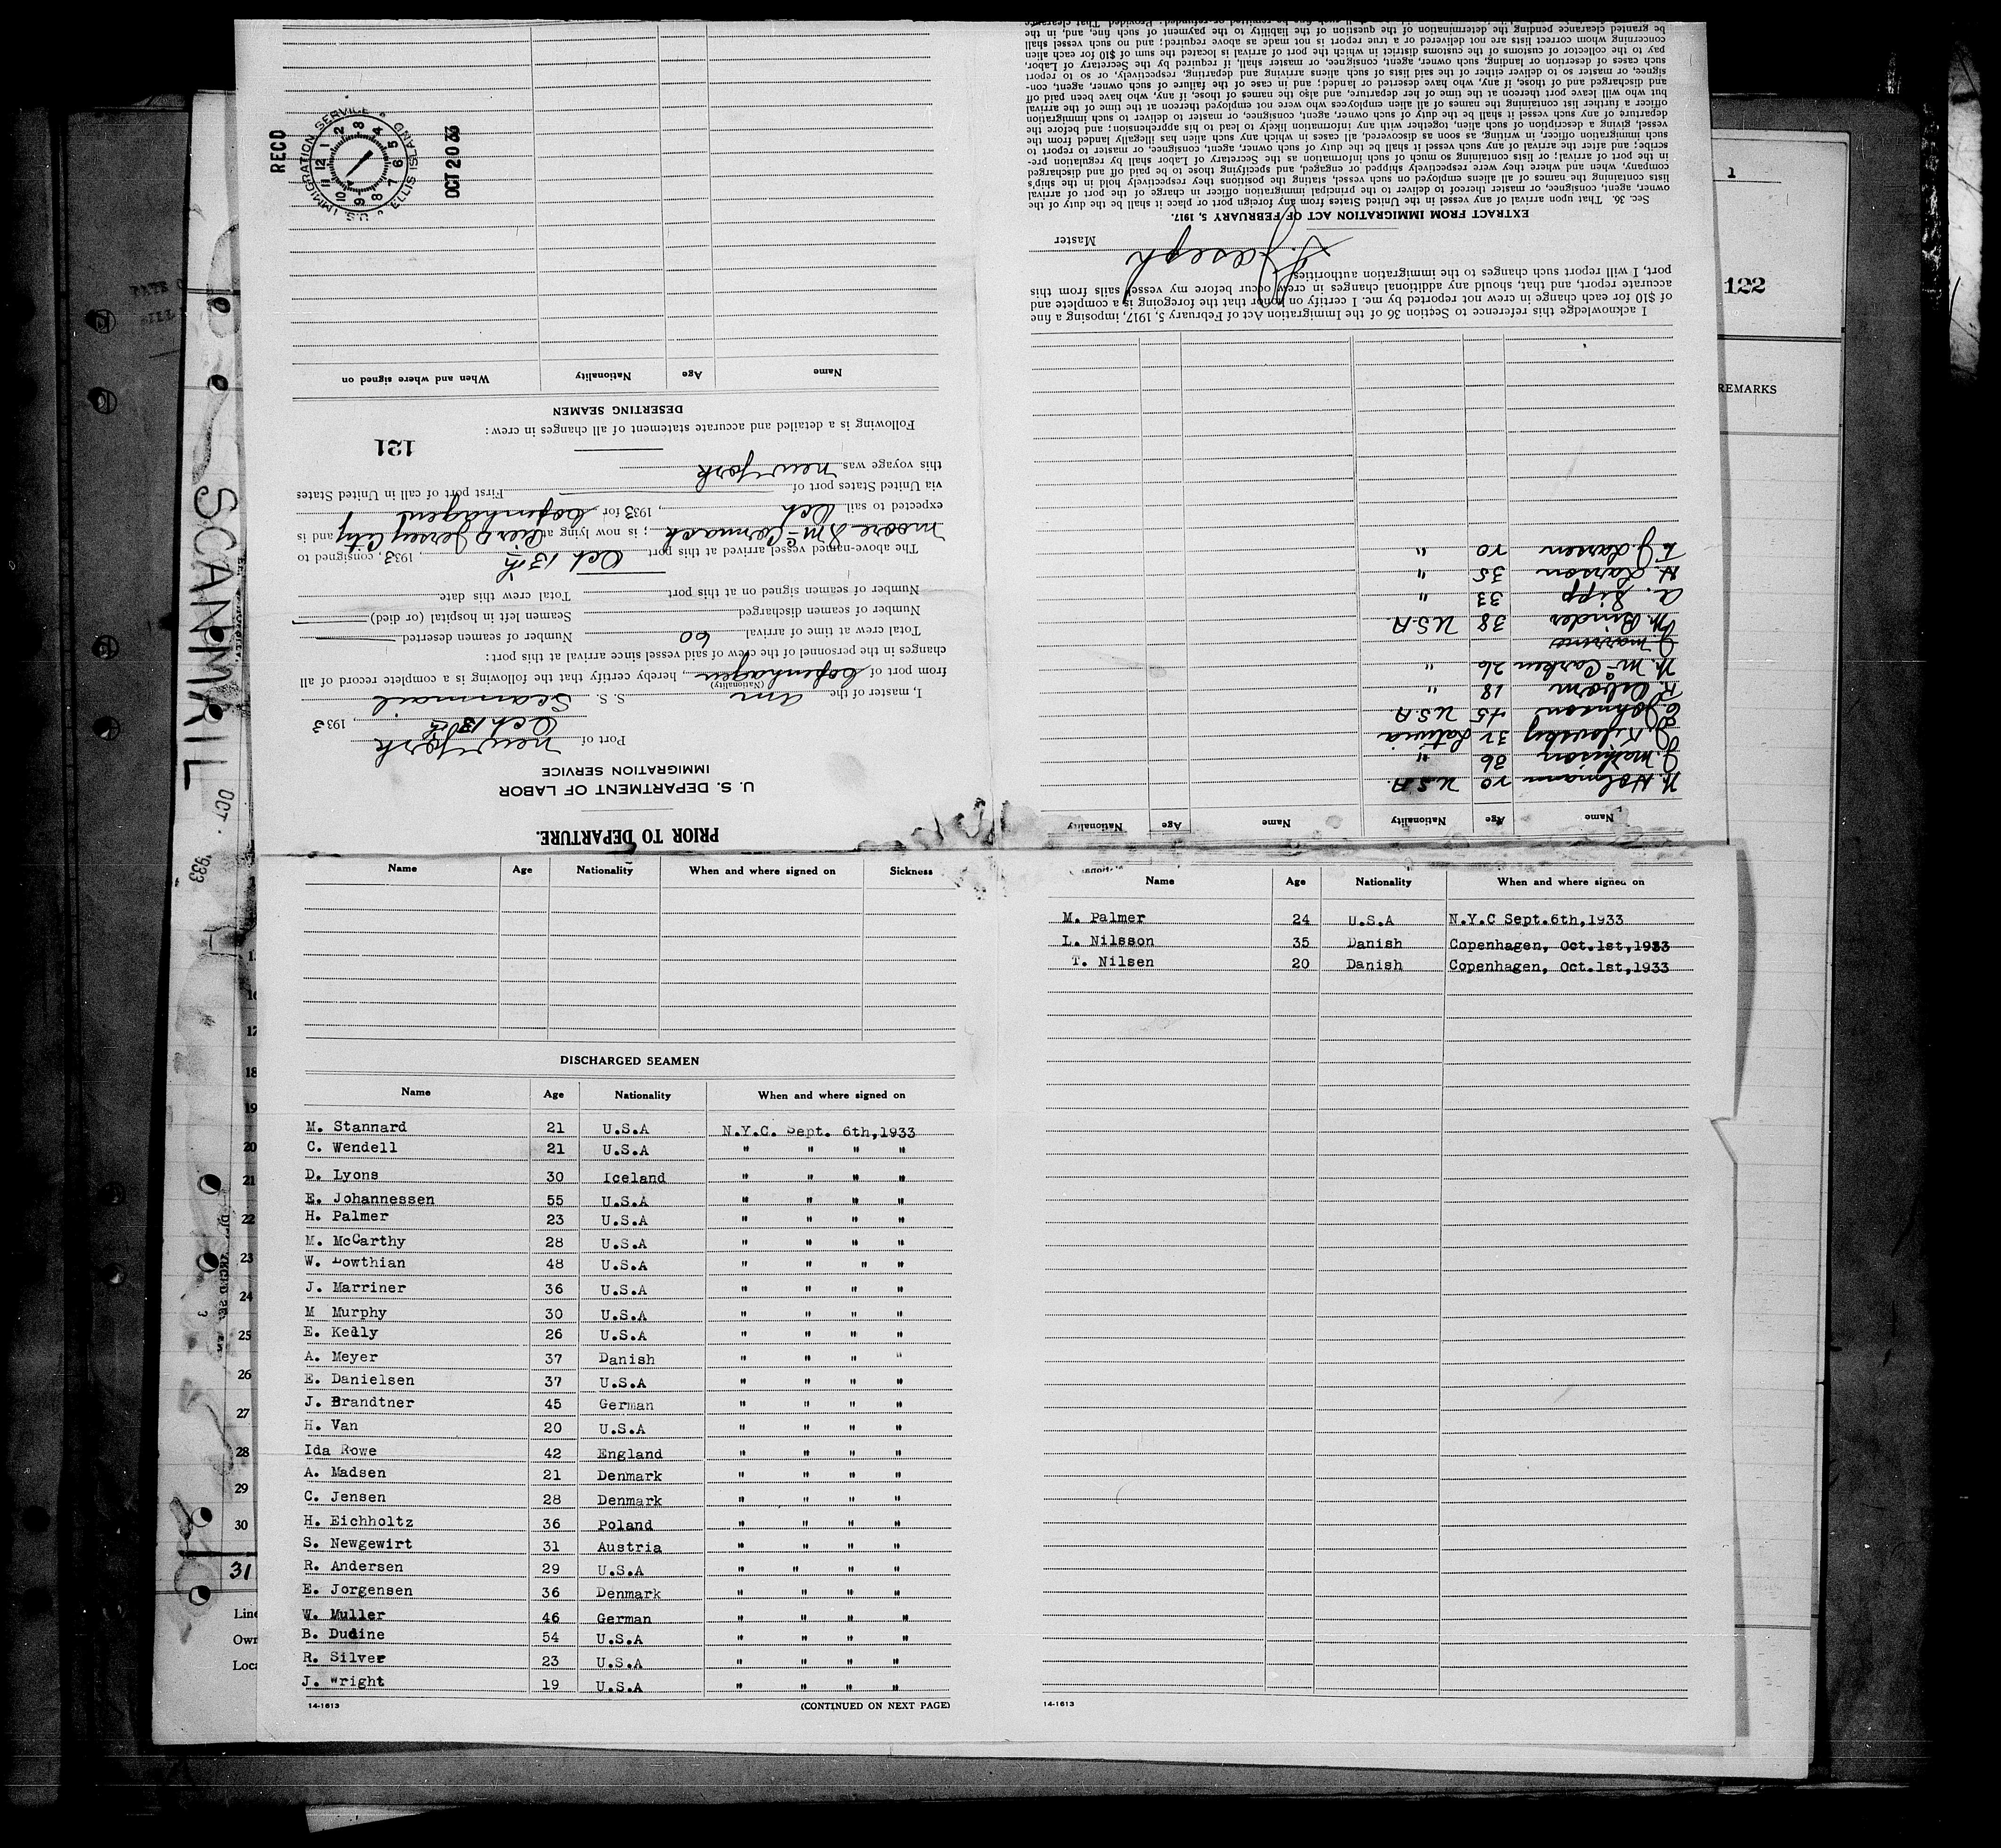 PRIOR TO DEPARTURE.
U. S. DEPARTMENT OF LABOR
IMMIGRATION SERVICE
Port of New York
Oct 13th, 1933
I, master of the Am S. S. Scanmail
(Nationality)
from port of Copenhagen, hereby certify that the following is a complete record of all
changes in the personnel of the crew of said vessel since arrival at this port:
Total crew at time of arrival 60 Number of seamen deserted
Number of seamen discharged Seamen left in hospital (or died)
Number of seamen signed on at this port Total crew this date
The above-named vessel arrived at this port Oct 13th, 1933, consigned to
Moore & McCormack; is now lying at Pier D Jersey City and is
expected to sail Oct, 1933 for Copenhagen
via United States port of First port of call in United States
this voyage was New York
121
Following is a detailed and accurate statement of all changes in crew:
DESERTING SEAMEN
Name Age Nationality When and where signed on
RECD
U.S. IMMIGRATION SERVICE
ELLIS ISLAND
OCT 20 33
Name Age Nationality Name Age Nationality
N. Holmann 20 U.S.A.
J. Mathison 36 "
37 Latvia
C. Johnson 45 U.S.A
R. Osborn 18 "
N. McCarken 26 "
J. Marrino
M. Binder 38 U.S.A
A. Sipp 33 "
H. Larson 35 "
L. J. Larsen 20 "
I acknowledge this reference to Section 36 of the Immigration Act of February 5, 1917, imposing a fine
of $10 for each change in crew not reported by me. I certify on honor that the foregoing is a complete and
accurate report, and that, should any additional changes in crew occur before my vessel sails from this
port, I will report such changes to the immigration authorities.
Joseph
Master
EXTRACT FROM IMMIGRATION ACT OF FEBRUARY 5, 1917.
Sec. 36. That upon arrival of any vessel in the United States from any foreign port or place it shall be the duty of the
owner, agent, consignee, or master thereof to deliver to the principal immigration officer in charge of the port of arrival
lists containing the names of all aliens employed on such vessel, stating the positions they respectively hold in the ship's
company, when and where they were respectively shipped or engaged, and specifying those to be paid off and discharged
in the port of arrival; or lists containing so much of such information as the Secretary of Labor shall by regulation pre-
scribe; and after the arrival of any such vessel it shall be the duty of such owner, agent, consignee, or master to report to
such immigration officer, in writing, as soon as discovered, all cases in which any such alien has illegally landed from the
vessel, giving a description of such alien, together with any information likely to lead to his apprehension; and before the
departure of any such vessel it shall be the duty of such owner, agent, consignee, or master to deliver to such immigration
officer a further list containing the names of all alien employees who were not employed thereon at the time of the arrival
but who will leave port thereon at the time of her departure, and also the names of those, if any, who have been paid off
and discharged and of those, if any, who have deserted or landed; and in case of the failure of such owner, agent, con-
signee, or master so to deliver either of the said lists of such aliens arriving and departing, respectively, or so to report
such cases of desertion or landing, such owner, agent, consignee, or master shall, if required by the Secretary of Labor,
pay to the collector of customs of the customs district in which the port of arrival is located the sum of $10 for each alien
concerning whom correct lists are not delivered or a true report is not made as above required; and no such vessel shall
be granted clearance pending the determination of the question of the liability to the payment of such fine, and, in the
Name Age Nationality When and where signed on Sickness
DISCHARGED SEAMEN
Name Age Nationality When and where signed on
M. Stannard 21 U.S.A N.Y.C. Sept. 6th,1933
C. Wendell 21 U.S.A " " " "
D. Lyons 30 Iceland " " " "
E. Johannessen 55 U.S.A " " " "
H. Palmer 23 U.S.A " " " "
M. McCarthy 28 U.S.A " " " "
W. Lowthian 48 U.S.A " " " "
J. Marriner 36 U.S.A " " " "
M Murphy 30 U.S.A " " " "
E. Kedly 26 U.S.A " " " "
A. Meyer 37 Danish " " " "
E. Danielsen 37 U.S.A " " " "
J. Brandtner 45 German " " " "
H. Van 20 U.S.A " " " "
Ida Rowe 42 England " " " "
A. Madsen 21 Denmark " " " "
C. Jensen 28 Denmark " " " "
H. Eichholtz 36 Poland " " " "
S. Newgewirt 31 Austria " " " "
R. Andersen 29 U.S.A " " " "
E. Jorgensen 36 Denmark " " " "
W. Muller 46 German " " " "
B. Dudine 54 U.S.A " " " "
R. Silver 23 U.S.A " " " "
J. Wright 19 U.S.A " " " "
14-1613 (CONTINUED ON NEXT PAGE)
Name Age Nationality When and where signed on
M. Palmer 24 U.S.A N.Y.C Sept.6th,1933
L. Nilsson 35 Danish Copenhagen, Oct.1st,1933
T. Nilsen 20 Danish Copenhagen, Oct.1st,1933
14-1613
SCANMAIL
OCT. 1933
16
17
18
19
20
21
22
23
24
25
26
27
28
29
30
31
Line
Own
Loca
1
122
REMARKS